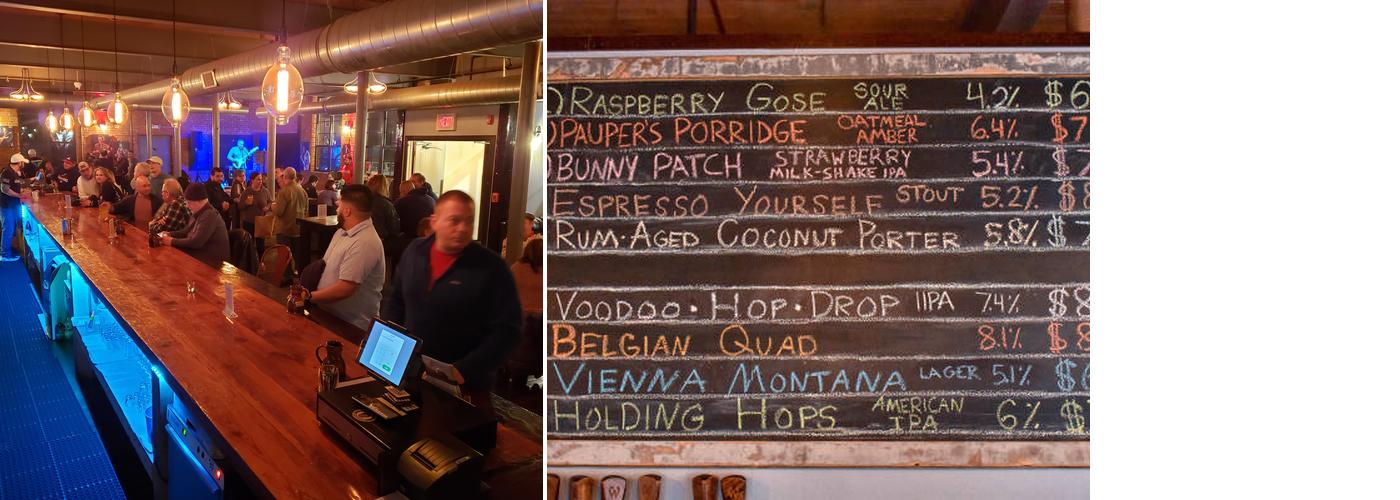 RASPBERRY GOSE SOUR ALE 4.2% $6
PAUPER'S PORRIDGE OATMEAL AMBER 6.4% $7
BUNNY PATCH STRAWBERRY MILK-SHAKE IPA 5.4% $7
ESPRESSO YOURSELF STOUT 5.2% $8
RUM·AGED COCONUT PORTER 5.8% $7
VOODOO·HOP·DROP IIPA 7.4% $8
BELGIAN QUAD 8.1% $8
VIENNA MONTANA LAGER 5.1% $6
HOLDING HOPS AMERICAN IPA 6% $7